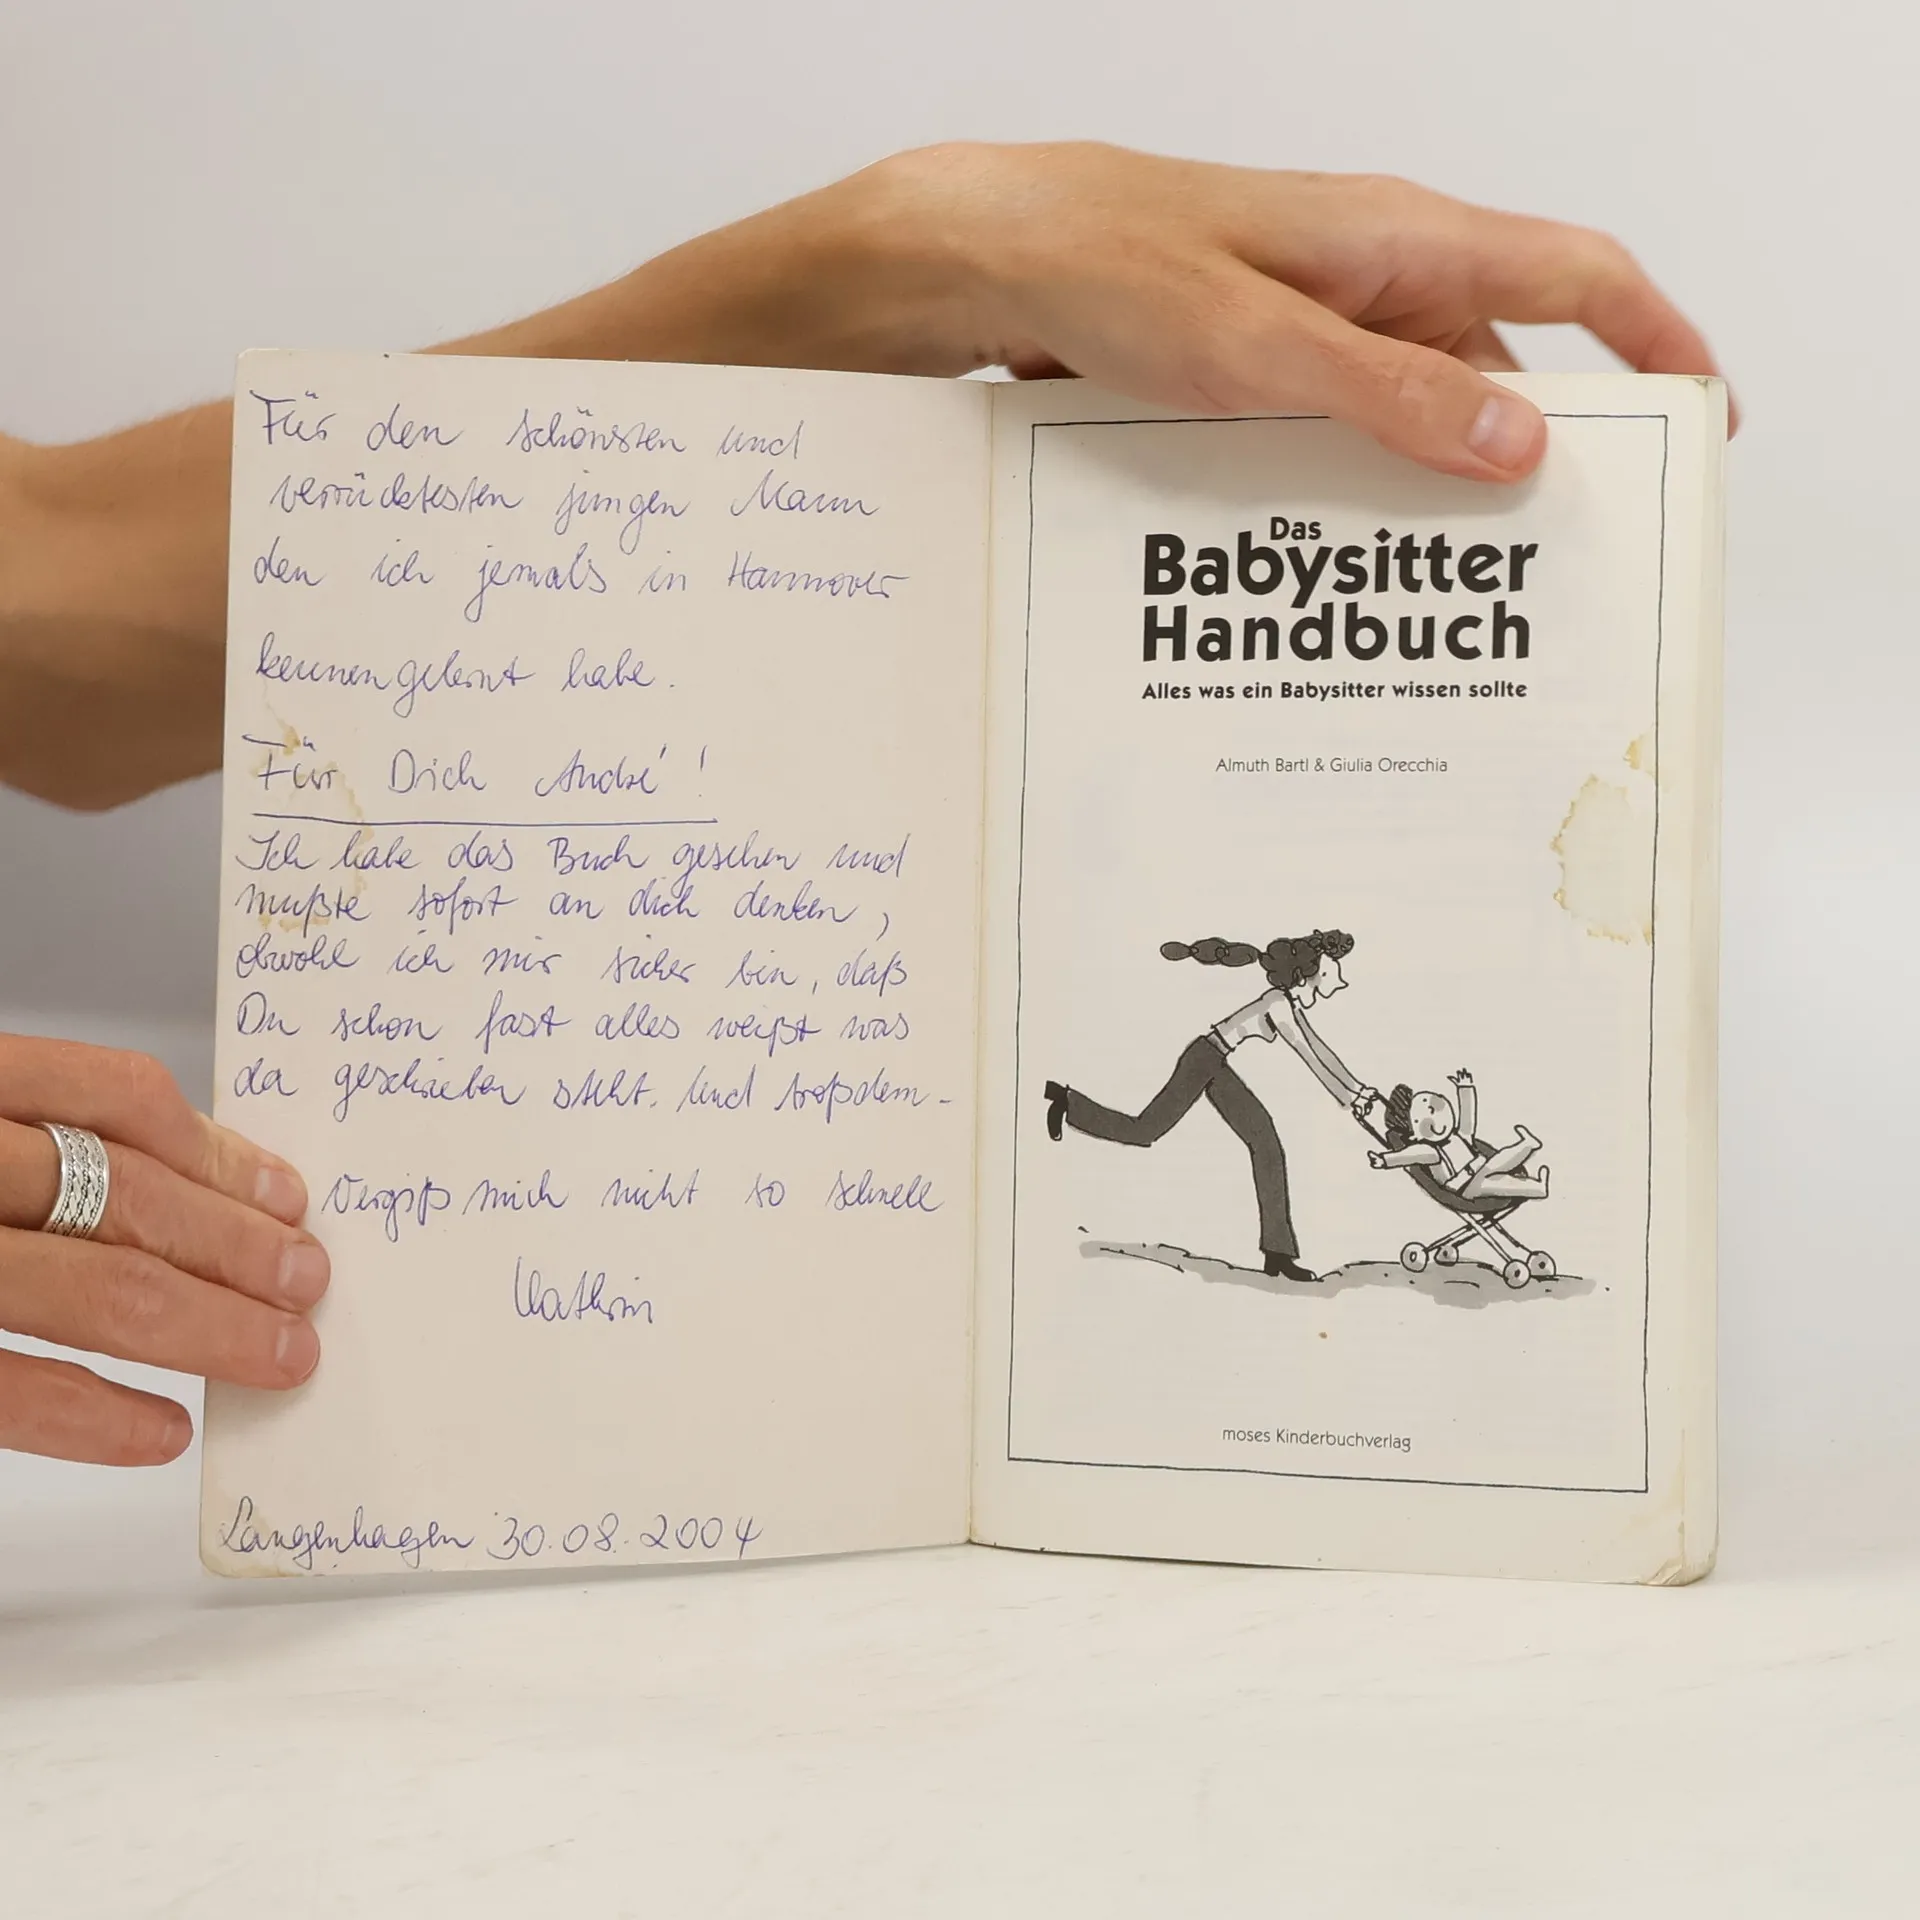 Für den schönsten und
verrücktesten jungen Mann
den ich jemals in Hannover
kennengelernt habe.
Für Dich André!
Ich habe das Buch gesehen und
mußte sofort an dich denken,
obwohl ich mir sicher bin, daß
Du schon fast alles weißt was
da geschrieben steht. Und troßdem -
Vergiß mich nicht so schnell
Kathrin
Langenhagen 30.08.2004
Das
Babysitter
Handbuch
Alles was ein Babysitter wissen sollte
Almuth Bartl & Giulia Orecchia
moses Kinderbuchverlag